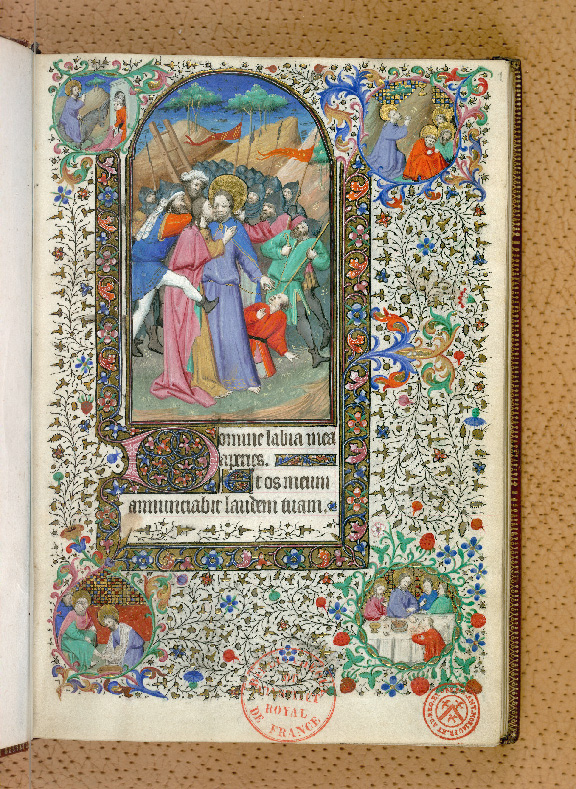 Domine labia mea
aperies.
Et os meum
annunciabit laudem tuam.
ROYAL
DE FRANCE